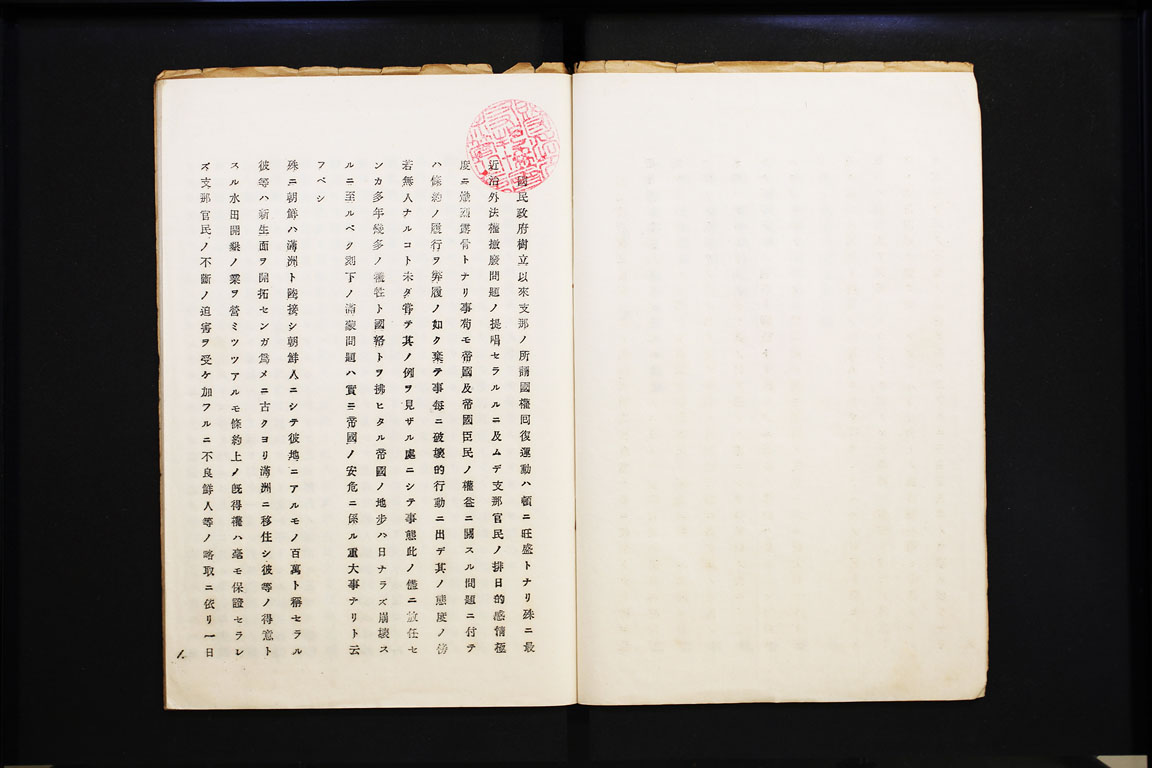 國民政府樹立以來支那ノ所謂國權囘復運動ハ頓ニ旺盛トナリ殊ニ最
近治外法權撤廢問題ノ提唱セラルルニ及ムデ支那官民ノ排日的感情極
度ニ熾烈露骨トナリ事苟モ帝國及帝國臣民ノ權益ニ關スル問題ニ付テ
ハ條約ノ履行ヲ弊履ノ如ク棄テ事每ニ破壞的行動ニ出デ其ノ態度ノ傍
若無人ナルコト未ダ嘗テ其ノ例ヲ見ザル處ニシテ事態此ノ儘ニ放任セ
ンカ多年幾多ノ犧牲ト國帑トヲ拂ヒタル帝國ノ地步ハ日ナラズ崩壞ス
ルニ至ルベク刻下ノ滿蒙問題ハ實ニ帝國ノ安危ニ係ル重大事ナリト云
フベシ
殊ニ朝鮮ハ滿洲ト陸接シ朝鮮人ニシテ彼地ニアルモノ百萬ト稱セラル
彼等ハ新生面ヲ開拓センガ爲メニ古クヨリ滿洲ニ移住シ彼等ノ得意ト
スル水田開墾ノ業ヲ營ミツツアルモ條約上ノ旣得權ハ毫モ保證セラレ
ズ支那官民ノ不斷ノ迫害ヲ受ケ加フルニ不良鮮人等ノ略取ニ依リ一日